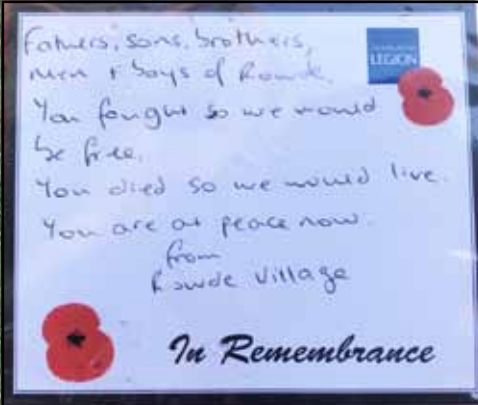 Fathers, sons, brothers,
men + boys of Rowde.
LEGION
You fought so we would
be free.
You died so we would live.
You are at peace now.
from
Rowde Village
In Remembrance